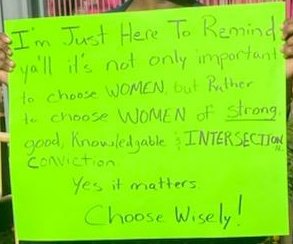 I'm Just Here To Remind
ya'll it's not only important
to choose WOMEN, but Rather
to choose WOMEN of strong
good, Knowledgable & INTERSECTION
CONVICTION
Yes it matters.
Choose Wisely!